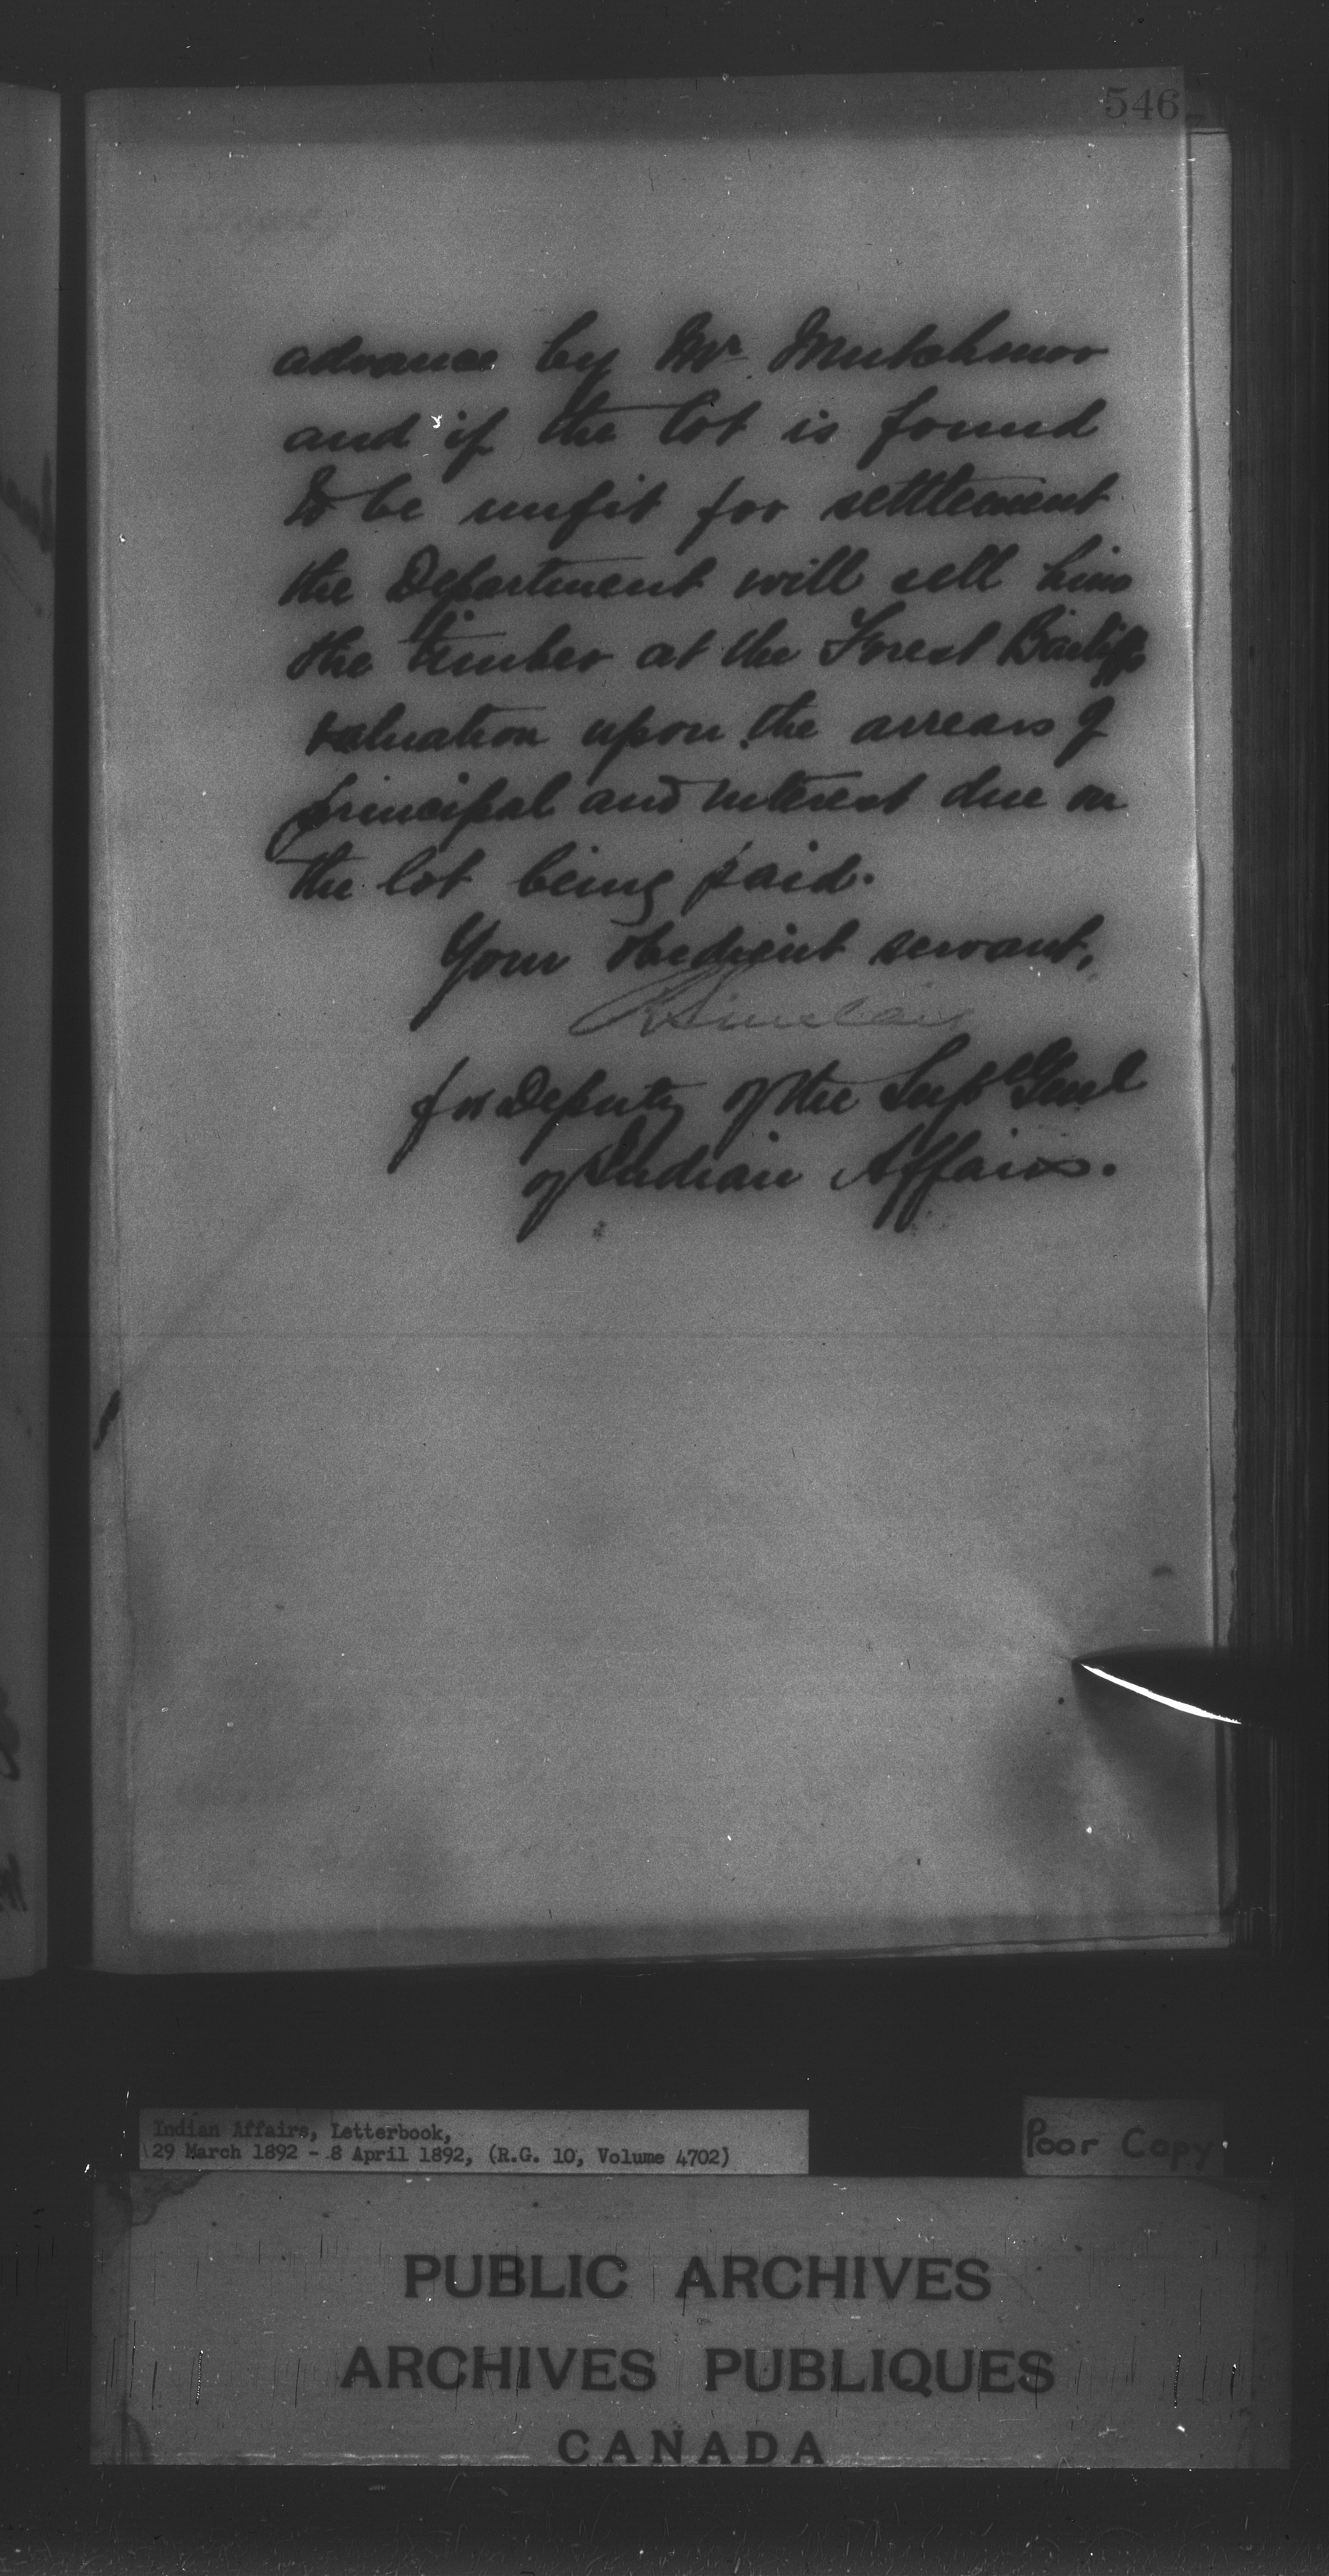 546
advance by Mr. Mutchmor
and if the lot is found
to be unfit for settlement
the Department will sell him
the timber at the Forest Bailiff's
valuation upon the arrears of
principal and interest due on
the lot being paid.
Your obedient servant,
R Sinclair
for Deputy of the Supt Genl
of Indian Affairs.
Indian Affairs, Letterbook,
29 March 1892 - 8 April 1892, (R.G. 10, Volume 4702)
Poor Copy.
PUBLIC ARCHIVES
ARCHIVES PUBLIQUES
CANADA